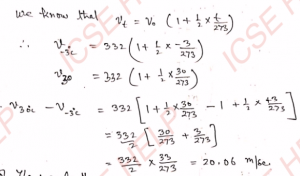 we know that V_t = V_0 (1 + 1/2 × t/273)
∴ V_-3°c = 332 (1 + 1/2 × -3/273)
V_30 = 332 (1 + 1/2 × 30/273)
V_30c - V_-3°c = 332 [1 + 1/2 × 30/273 - 1 + 1/2 × +3/273]
= 332/2 [30/273 + 3/273]
= 332/2 × 33/273 = 20.06 m/sec.